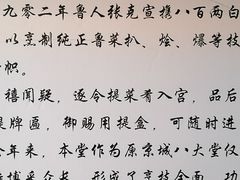 九零二年鲁人张克宣携八百两白
以烹制纯正鲁菜扒、烩、爆等技
帜。
禧闻疑，逐令提菜肴入宫，品后
提牌匾，御赐用提盒，可随时进
年来，本堂作为原京城八大堂仅
采众
形成了烹技全面，功